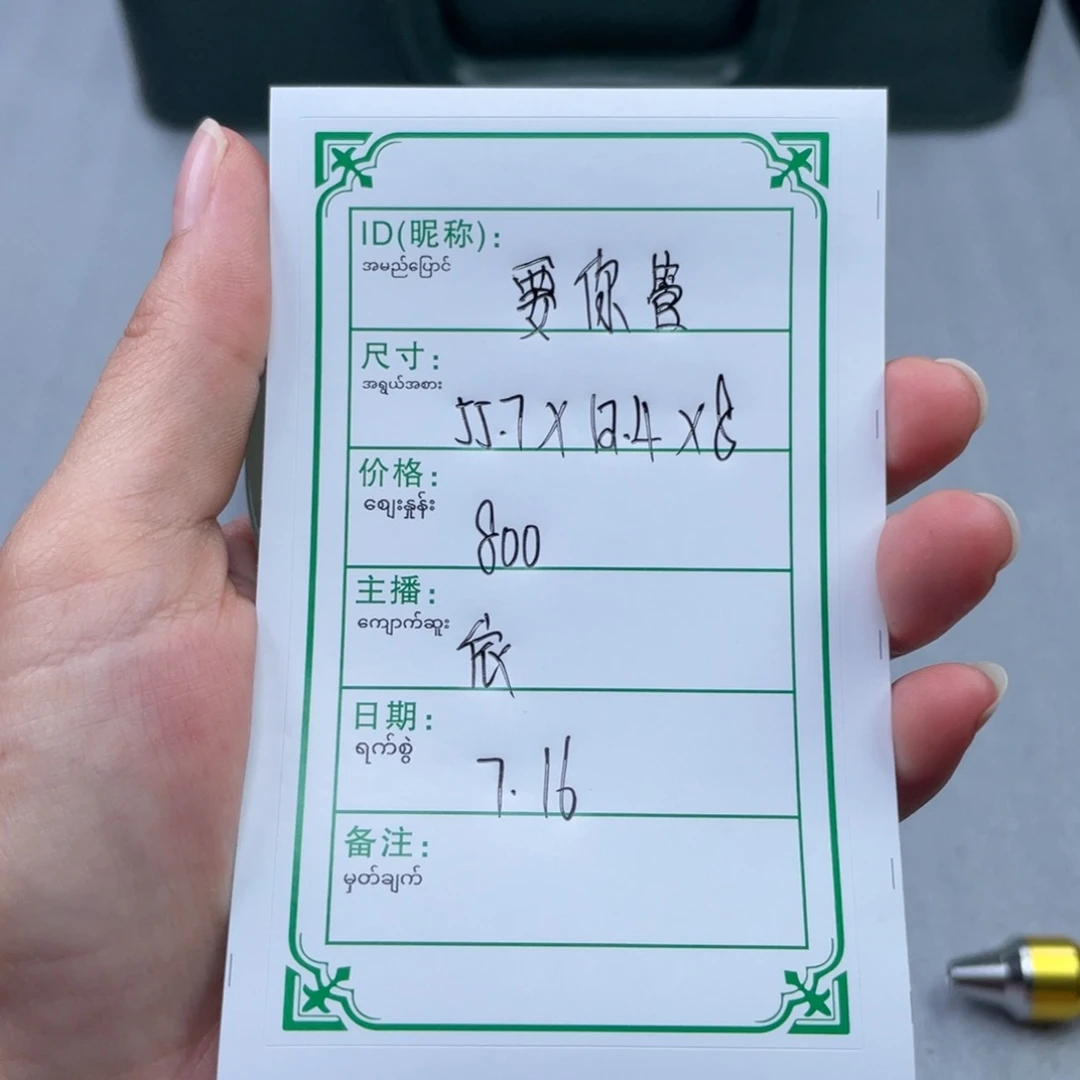 ID(昵称):
အမည်ပြောင်
要你
尺寸:
အရွယ်အစား
55.7 X 12.4 X 8
价格:
ဈေးနှုန်း
800
主播:
ကျောက်ဆူး
依
日期:
ရက်စွဲ
7.16
备注:
မှတ်ချက်